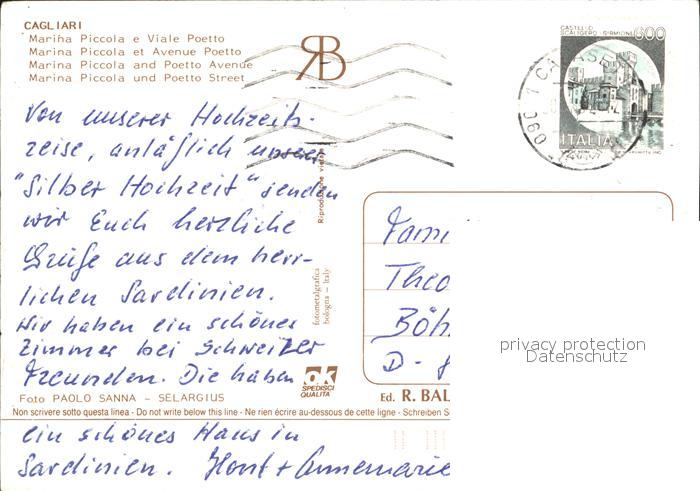 CAGLIARI
Marina Piccola e Viale Poetto
Marina Piccola et Avenue Poetto
Marina Piccola and Poetto Avenue
Marina Piccola und Poetto Street
RB
CASTELLO
SCALIGERO - SIRMIONE
600
ITALIA
Von unserer Hochzeits-
reise, anläßlich unserer
"Silber Hochzeit" senden
wir Euch herzliche
Grüße aus dem herr-
lichen Sardinien.
Wir haben ein schönes
Zimmer bei Schweizer
Freunden. Die haben
Riproduzione vietata
fotometalgrafica
bologna - Italy
ok
SPEDISCI
QUALITA'
Fami
Theo
Böh
D -
privacy protection
Datenschutz
Foto PAOLO SANNA - SELARGIUS
Ed. R. BAL
Non scrivere sotto questa linea - Do not write below this line - Ne rien écrire au-dessous de cette ligne - Schreiben S
ein schönes Haus in
Sardinien. Horst + Annemarie